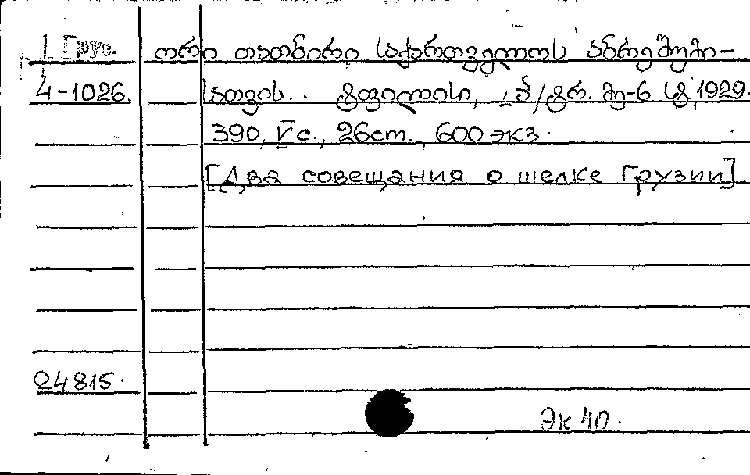 1 Груз. ორი თათბირი საქართველოს აბრეშუმი-
4-1026. სათვის. ტფილისი, პ/გრ. მე-6 ს, 1929.
390, V с., 26 cm., 600 экз.
[Два совещания о шелке Грузии]
24815.
Эк 40.